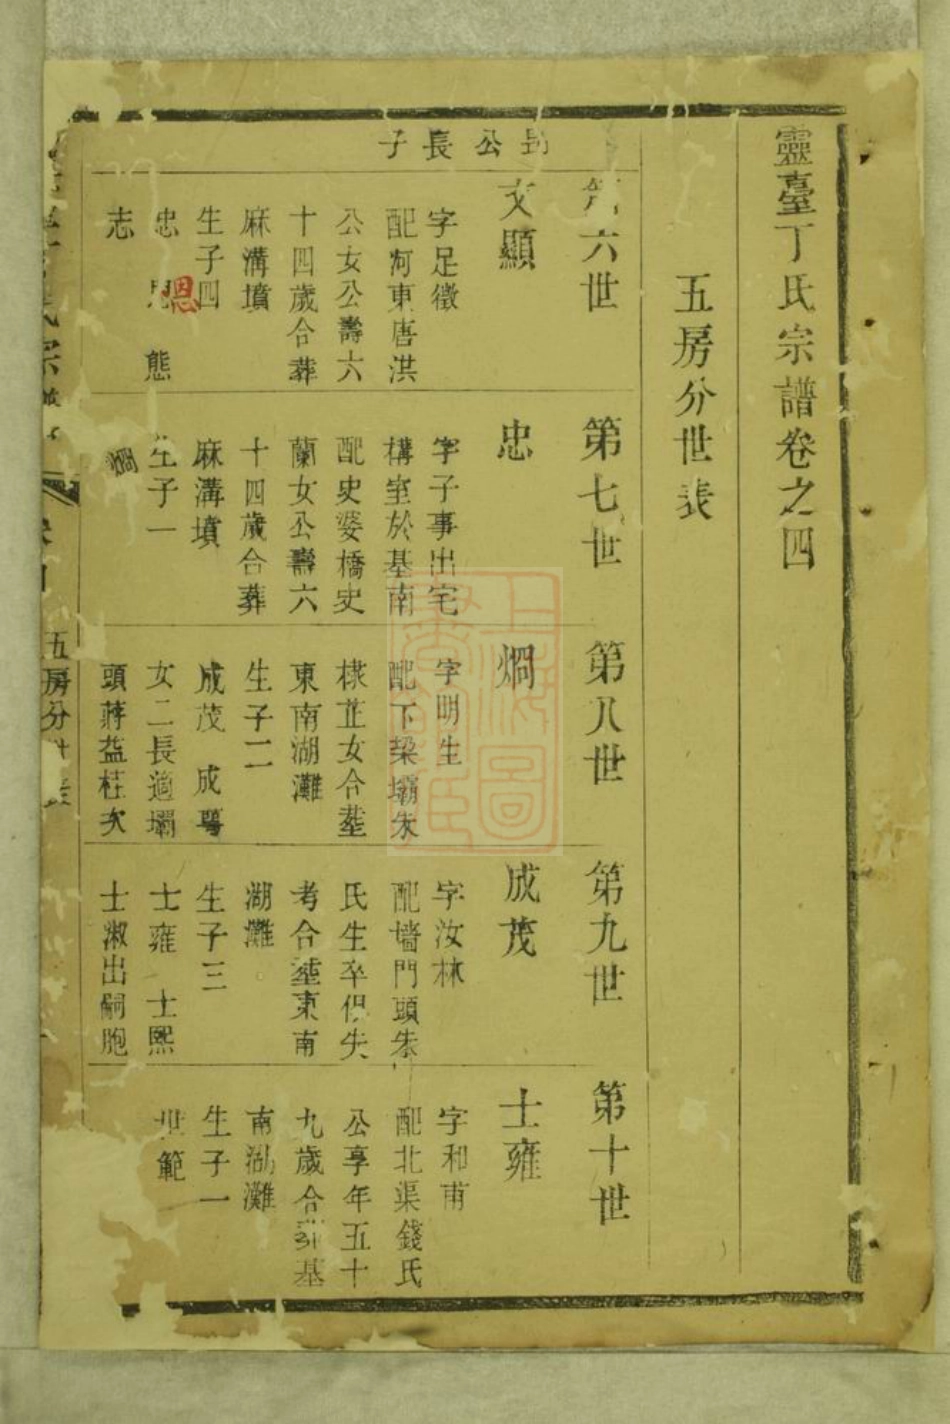 靈臺丁氏宗譜卷之四
五房分世表
公長子
第六世
文顯
字足徵
配河東唐洪
公女公壽六
十四歲合葬
麻溝墳
生子四
忠 恩 態
志
第七世
忠
字子事出宅
構室於基南
配史婆橋史
蘭女公壽六
十四歲合葬
麻溝墳
生子一
第八世
炯
字明生
配下梁壩朱
棣芷女合塟
東南湖灘
生子二
成茂 成粤
女二長適壩
頭蔣益桂次
第九世
成茂
字汝林
配墻門頭朱
氏生卒俱失
考合塟東南
湖灘
生子三
士雍 士熙
士淑出嗣胞
第十世
士雍
字和甫
配北渠錢氏
公享年五十
九歲合 基
南湖灘
生子一
世範
五房分世表